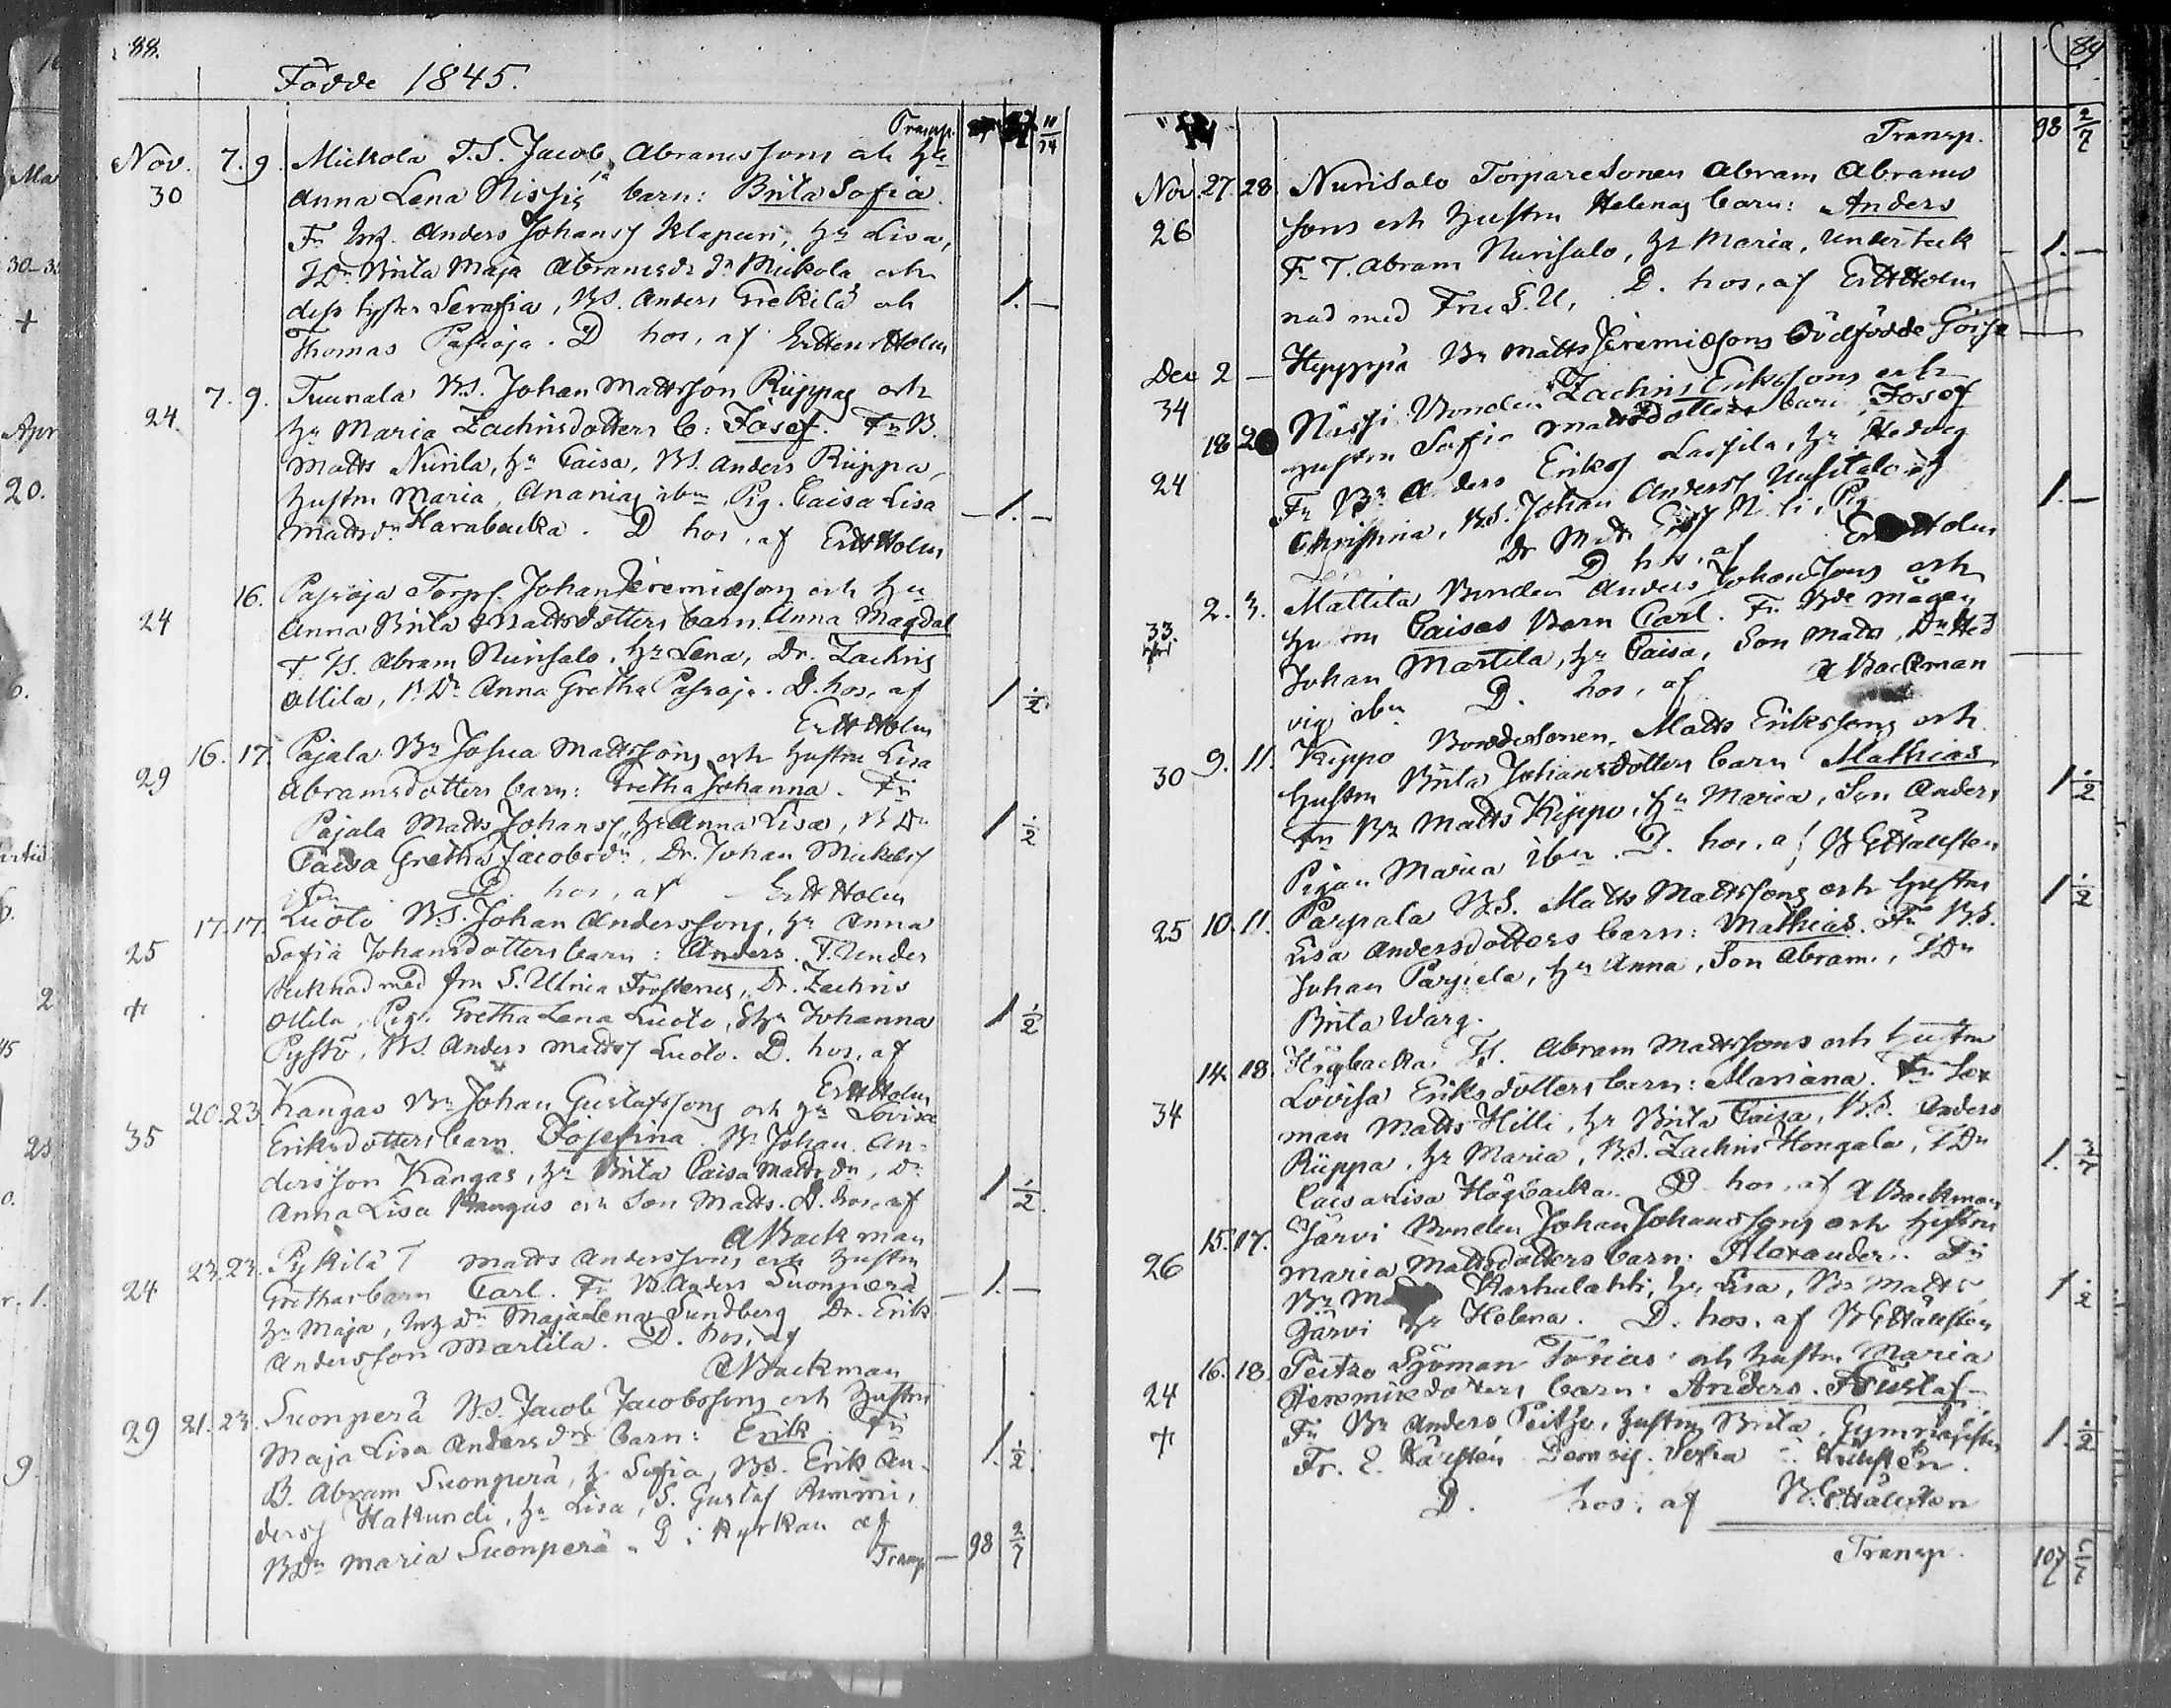 88.
Födde 1845.
Transp. 11/14
Nov. 7. 9. Mickola T.S. Jacob Abramssons och Hu
30 Anna Lena barn: Brita Sofia.
Anders Johanss Klapuri, Hu Lisa,
Brita Maja Abramsdr Mickola och
dess syster Serafia, BS. Anders Grekilä och 1.—
Thomas Pasoja. D hos, af Holm
7. 9. Tunnala BS. Johan Mattsson Riippas och
24 Hu Maria Zachrisdotters b: Josef. Fr B.
Matts Niirila, Hu Caisa, BS. Anders Riippa,
Hustru Maria, Ananias ibm Pig. Caisa Lisa
Mattsdr Harabacka. D hos, af Holm —1.—
16. Pasoja Torp. Johan Jeremiæsons och Hu
24 Anna Brita Mattsdotters barn Anna Magdal
Abram Nurisalo, Hu Lena, Dr. Zachris
Ollila, Dr Anna Gretha Pasoja. D. hos, af 1 1/2
Holm
16. 17. Pajala Br Josua Mattssons och hustru Lisa
29 Abramsdotters barn: Gretha Johanna. Fr
Pajala Matts Johanss, Hu Anna Lisa, B Dr 1 1/2
Caisa Gretha Jacobsdr, Dr. Johan Mickelss
D. hos, af Holm
17. 17. Luoto BS. Johan Anderssons, Hu Anna
25 Sofia Johansdotters barn: Anders. F. Under
tecknad med fru S. Ulrica Frosterus, Dr. Zachris
+ Ollila, Pig. Gretha Lena Luoto, Johanna 1 1/2
Pystö, BS. Anders Mattss Luoto. D. hos, af
Holm
20. 23. Kangas Br Johan Gustafssons och Hu Lovisa
35 Eriksdotters barn Josefina. Br Johan An-
dersson Kangas, Hu Brita Caisa Mattsdr, Dr
Anna Lisa Kangas och Son Matts. D. hos, af 1 1/2
A Backman
23. 23. Pykilä T Matts Anderssons och hustru
24 Grethas barn Carl. Fr B. Anders Suonperä —1.—
Hu Maja, Maja Lena Sundberg Dr. Erik
Andersson Martila. D. hos, af
A Backman
29 21. 23. Suonperä BS. Jacob Jacobssons och hustru
Maja Lisa Andersdrs barn: Erik. Fr
B. Abram Suonperä, H. Sofia, BS. Erik An- 1. 1/2
derss Hakundi, Hu Lisa, S. Gustaf Rimmi,
BDr Maria Suonperä. D i Kyrkan af
Transp — 98 2/7
89
Transp. 98 2/7
Nov. 27. 28. Nurisalo Torparesonen Abram Abrams
26 sons och hustru Helenas barn: Anders
Fr T. Abram Nurisalo, Hu Maria, Underteck — 1.—
nad med Fru S.U, D. hos, af Holm
Dec 2 — Hyyppä Br Matts Jeremiæsons Dödfödde Gosse
34 Bonden Zachris Erikssons och
18 hustru Sofia Mattsdotters barn Josef
24 Fr Br Anders Erikss Lassila, Hu Hedvig
Christina, BS. Johan Anderss 1.—
D hos, af Holm
2. 3. Mattila Bonden Anders Johanssons och
33. Caisas Barn Carl. Fr Bde Mågen
Johan Martila, Hu Caisa, Son Matts, Dr Hed —
vig ibm D. hos, af A Backman
9. 11. Kippo Bondesonen Matts Erikssons och
30 hustru Brita Johansdotters barn Mathias 1 1/2
Fr Br Matts Kippo, Hu Maria, Son Anders
Pigan Maria ibm. D. hos, af B G Hällsten
25 10. 11. Parpala BS. Matts Mattssons och hustru 1 1/2
Lisa Andersdotters barn: Mathias. Fr BS.
Johan Parpala, Hu Anna, Son Abram,
Brita Warg.
14. 18. Högbacka Abram Mattssons och hustru
34 Lovisa Eriksdotters barn: Mariana. Fr Sex
man Matts Hilli, Hu Brita Caisa, BS. Anders
Riippa, Hu Maria, BS. Zachris Hongala, TDr 1.
Caisa Lisa Högbacka. D hos, af A Backman
15. 17. Järvi Bonden Johan Johanssons och hustru
26 Maria Mattsdotters barn: Alexander. Fr
Br Karhulahti, Hu Lisa, Br Matts 1 1/2
Järvi Hu Helena. D. hos, af B G Hällsten
16. 18. Peitzo Sjöman Tobias och hustru Maria
24 Jeremiedotters barn: Anders Gustaf
+ Fr Br Anders Peitzo, hustru Brita, Gymnasisten 1. 1/2
Fr. E. Hällsten Sofia Hällsten
D. hos, af B. G. Hällsten
Transp. 107